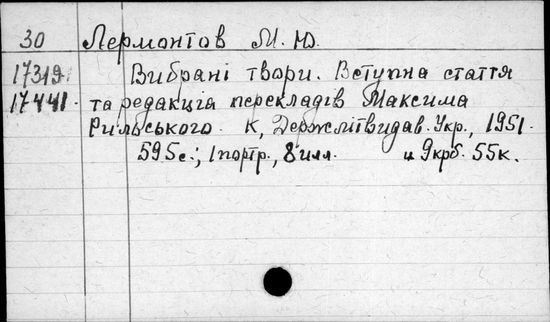 30 Лермонтов М. Ю.
17319. Вибрані твори. Вступна стаття
17441. та редакція перекладів Максима
Рильського. К, Держлітвидав. Укр., 1951.
595 с.; 1 портр., 8 илл. ц 9 крб. 55 к.